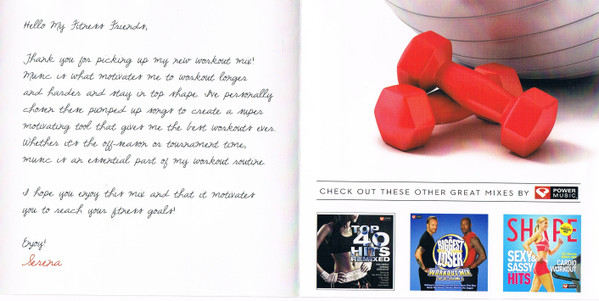 Hello My Fitness Friends,
Thank you for picking up my new workout mix!
Music is what motivates me to workout longer
and harder and stay in top shape. I've personally
chosen these pumped up songs to create a super
motivating tool that gives me the best workouts ever.
Whether it's the off-season or tournament time,
music is an essential part of my workout routine.
I hope you enjoy this mix and that it motivates
you to reach your fitness goals!
Enjoy!
Serena
CHECK OUT THESE OTHER GREAT MIXES BY POWER MUSIC
TOP
40
HITS
REMIXED
THE
BIGGEST
LOSER
WORKOUT MIX
SHAPE
SEXY&
SASSY
HITS
CARDIO
WORKOUT